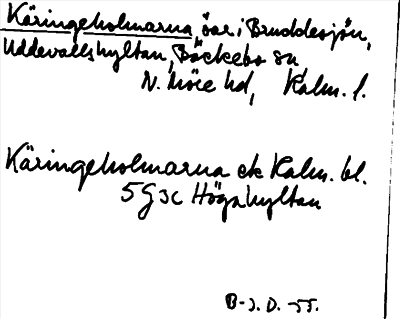 Käringeholmarna, öar i Bruddesjön,
Uddevallshyltan, Bäckebo sn
N. Möre hd, Kalm. l.
Käringeholmarna ek Kalm. bl.
5G3c Högahyltan
B-J. D. -55.